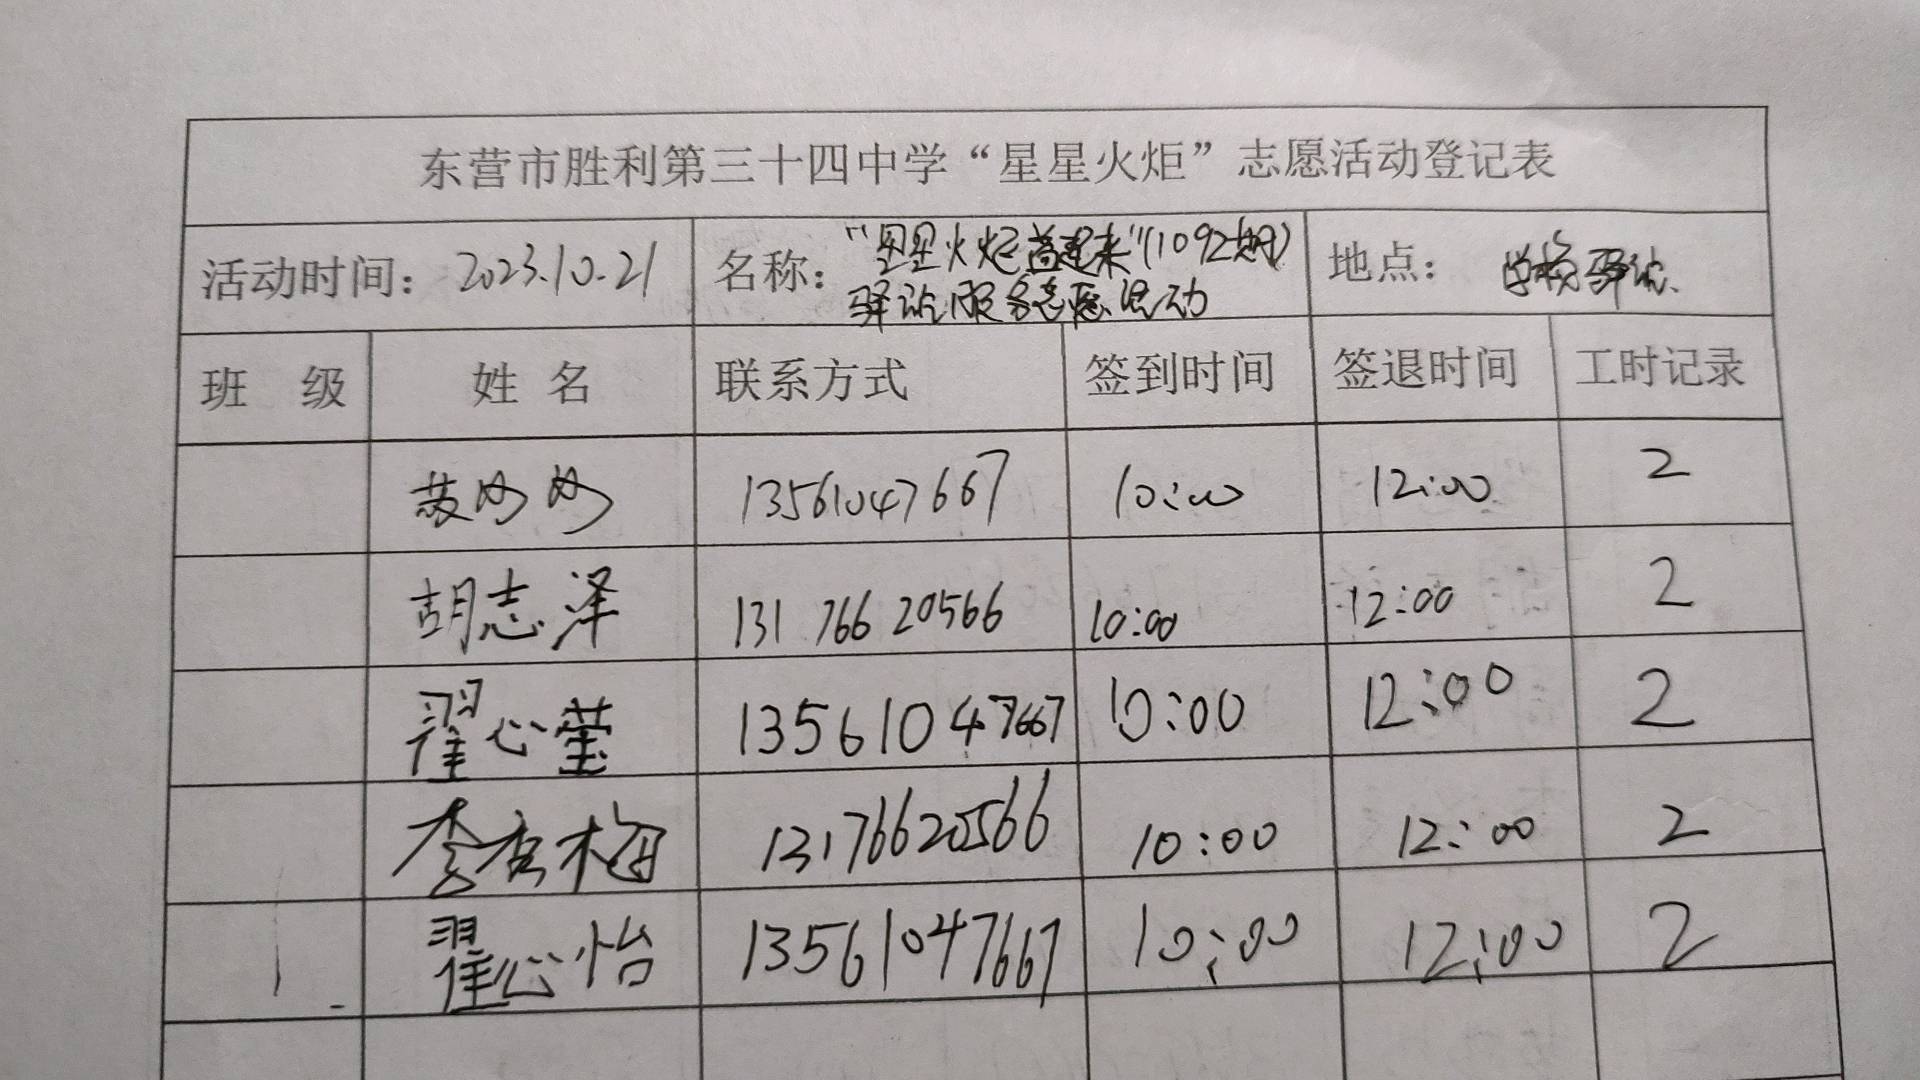 东营市胜利第三十四中学“星星火炬”志愿活动登记表
活动时间：2023.10.21 名称：“星星火炬益起来”(1092期) 地点：学校驿站
驿站服务志愿活动
班 级 姓 名 联系方式 签到时间 签退时间 工时记录
13561047667 10:00 12:00 2
胡志泽 131 766 20566 10:00 12:00 2
翟心莹 13561047667 10:00 12:00 2
李春梅 13176620566 10:00 12:00 2
翟心怡 13561047667 10:00 12:00 2